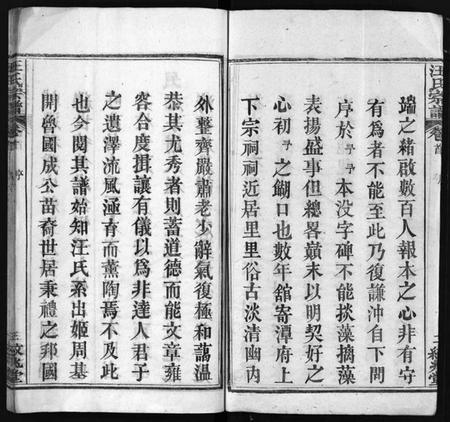 端之緒啟數百人報本之心非有守
有為者不能至此乃復謙沖自下問
序於予予本没字碑不能掞藻摛藻
表揚盛事但緫畧巔末以明契好之
心初予之餬口也數年舘寄潭府上
下宗祠祠近居里里俗古淡清幽内
汪氏宗譜
卷首
序
外整齊嚴肅老少辭氣復極和藹溫
恭其尤秀者則蓄道德而能文章雍
容合度揖讓有儀以為非達人君子
之遺澤流風涵育而薰陶焉不及此
也今閱其譜始知汪氏系出姬周基
開魯國成公苗裔世居秉禮之邦國
汪氏宗譜
卷首
序